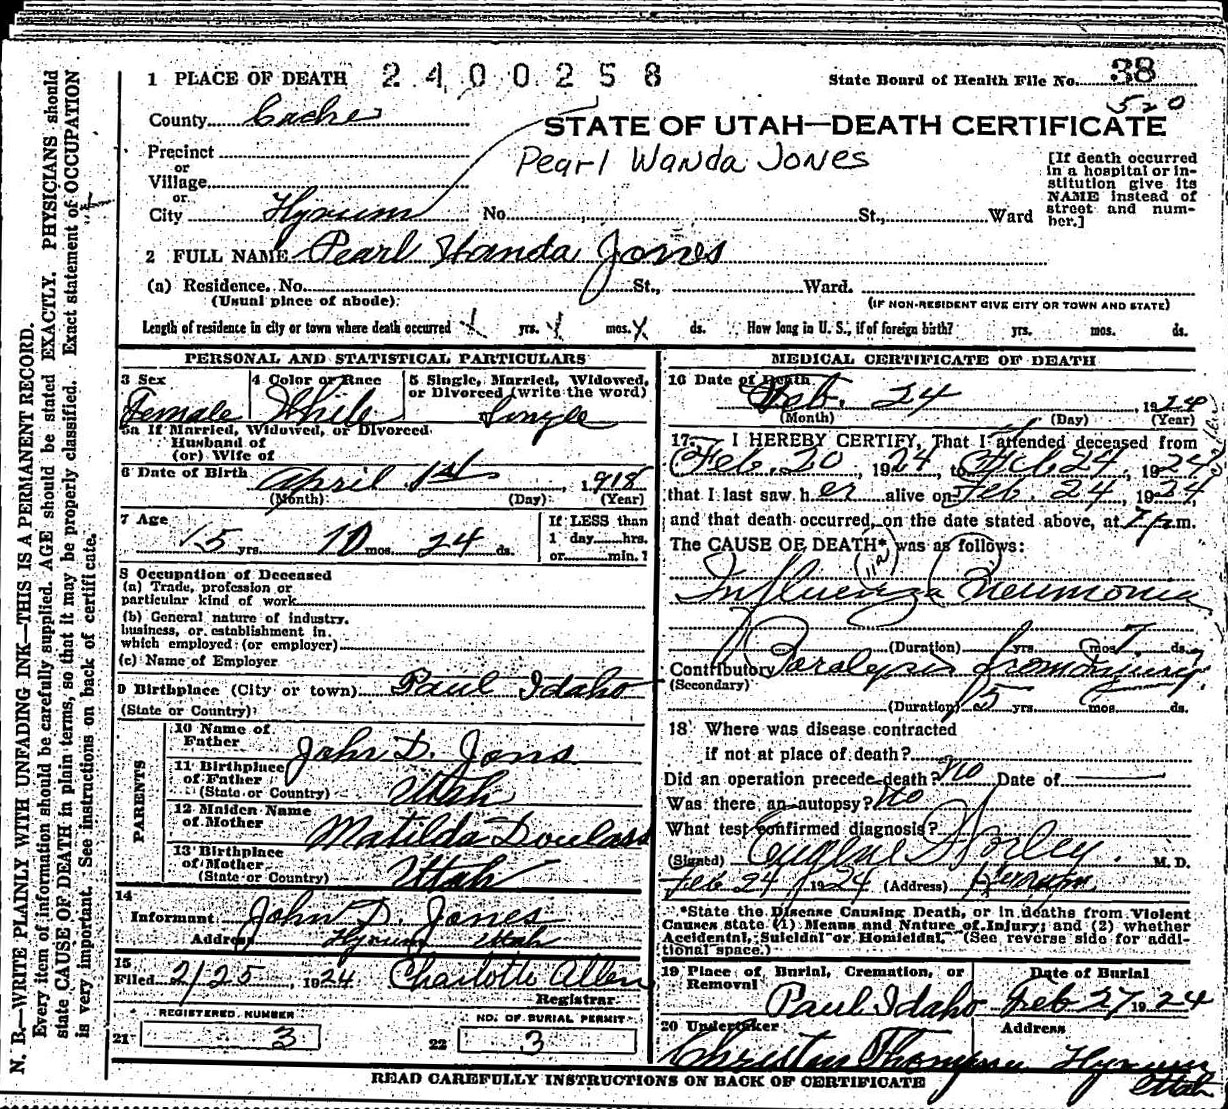 1 PLACE OF DEATH 2400258 State Board of Health File No. 38
520
County Cache
STATE OF UTAH—DEATH CERTIFICATE
Pearl Wanda Jones
Precinct
or
Village
or
City Hyrum No. St., Ward
[If death occurred
in a hospital or in-
stitution give its
NAME instead of
street and num-
ber.]
2 FULL NAME Pearl Wanda Jones
(a) Residence. No. St., Ward.
(Usual place of abode) (IF NON-RESIDENT GIVE CITY OR TOWN AND STATE)
Length of residence in city or town where death occurred x yrs. x mos. x ds. How long in U. S., if of foreign birth? yrs. mos. ds.
PERSONAL AND STATISTICAL PARTICULARS
3 Sex 4 Color or Race 5 Single, Married, Widowed,
or Divorced (write the word)
Female White Single
5a If Married, Widowed, or Divorced
Husband of
(or) Wife of
6 Date of Birth April 1st, 1918
(Month) (Day) (Year)
7 Age 15 yrs. 10 mos. 24 ds.
If LESS than
1 day hrs.
or min.?
8 Occupation of Deceased
(a) Trade, profession or
particular kind of work
(b) General nature of industry,
business, or establishment in
which employed (or employer)
(c) Name of Employer
9 Birthplace (City or town) Paul Idaho
(State or Country)
PARENTS
10 Name of
Father John D. Jons
11 Birthplace
of Father
(State or Country) Utah
12 Maiden Name
of Mother Matilda Doulass
13 Birthplace
of Mother
(State or Country) Utah
14
Informant John D. Jones
Address Hyrum Utah
15
Filed 2/25, 1924 Charlotte Allen
Registrar
REGISTERED NUMBER NO. OF BURIAL PERMIT
21 3 22 3
MEDICAL CERTIFICATE OF DEATH
16 Date of Death
Feb. 24, 1924
(Month) (Day) (Year)
17. I HEREBY CERTIFY, That I attended deceased from
Feb. 20, 1924, to Feb. 24, 1924
that I last saw her alive on Feb. 24, 1924
and that death occurred, on the date stated above, at 7 p.m.
The CAUSE OF DEATH* was as follows:
Influenza Pneumonia
(Duration) yrs. mos. 7 ds.
Contributory Paralysis from injury
(Secondary)
(Duration) 5 yrs. mos. ds.
18 Where was disease contracted
if not at place of death?
Did an operation precede death? no Date of
Was there an autopsy? no
What test confirmed diagnosis?
(Signed) Eugene Worley M. D.
Feb 24 1924 (Address) Hyrum
*State the Disease Causing Death, or in deaths from Violent
Causes state (1) Means and Nature of Injury; and (2) whether
Accidental, Suicidal or Homicidal. (See reverse side for addi-
tional space.)
19 Place of Burial, Cremation, or Date of Burial
Removal
Paul Idaho Feb 27, 1924
20 Undertaker Address
Hyrum
Utah
READ CAREFULLY INSTRUCTIONS ON BACK OF CERTIFICATE
N. B.—WRITE PLAINLY WITH UNFADING INK—THIS IS A PERMANENT RECORD.
Every item of information should be carefully supplied. AGE should be stated EXACTLY. PHYSICIANS should
state CAUSE OF DEATH in plain terms, so that it may be properly classified. Exact statement of OCCUPATION
is very important. See instructions on back of certificate.